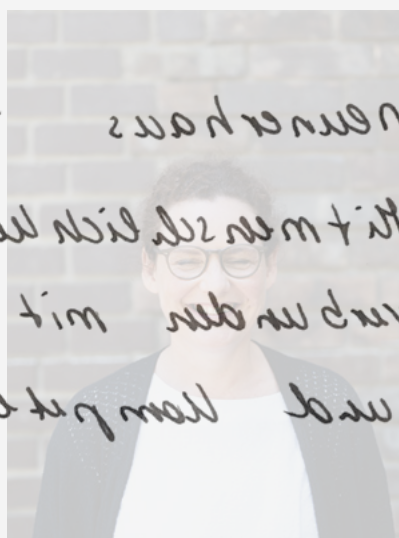 neunerhaus
Mitmenschlichke
verbunden mit
und Kompete